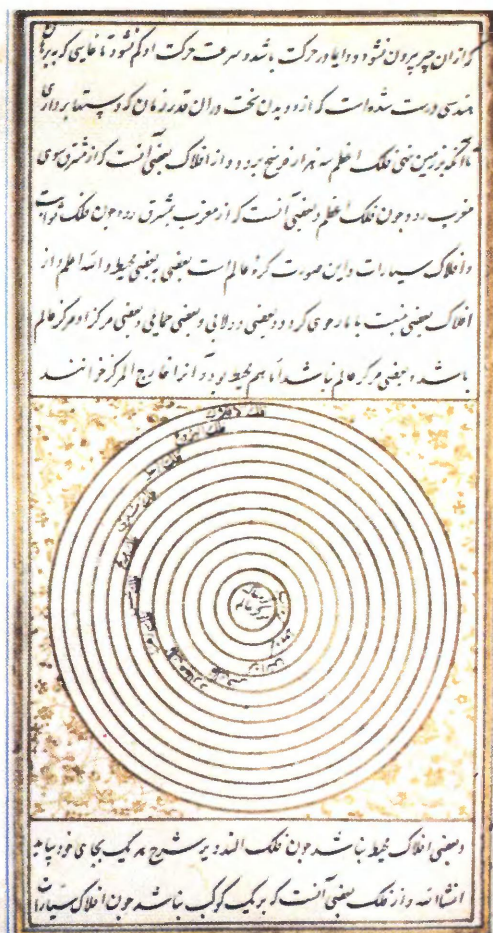 که از آن حیز بیرون نشود و دایما در حرکت باشد و سرعت حرکت او کم نشود تا غایتی که ببرهان
هندسی درست شده است که از دویدن سخت در آن قدر زمان که دستها بردارد
تا آنکه بر زمین نهد فلک اعظم سه هزار فرسنج برود و از افلاک بعضی آنست که از مشرق سوی
مغرب رود چون فلک اعظم و بعضی آنست که از مغرب بمشرق رود چون فلک ثوابت
و افلاک سیارات و این صورت کرهٔ عالم است بعضی ببعضی محیط والله اعلم و از
افلاک بعضی نسبت با ما رحوی گردد و بعضی دولابی و بعضی حمایلی و بعضی مرکز او مرکز عالم
باشد و بعضی مرکز عالم نباشد اما هم محیط بود آنرا خارج المرکز خوانند
فلک الافلاک
فلک البروج
فلک زحل
فلک مشتری
فلک المریخ
فلک الشمس
فلک الزهرة
فلک عطارد
فلک القمر
مرکز عالم
و بعضی افلاک محیط نباشد چون فلک التدویر شرح هر یک بجای خود بیاید
انشاالله و از فلک بعضی آنست که بر یک کوکب نباشد چون افلاک سیارات